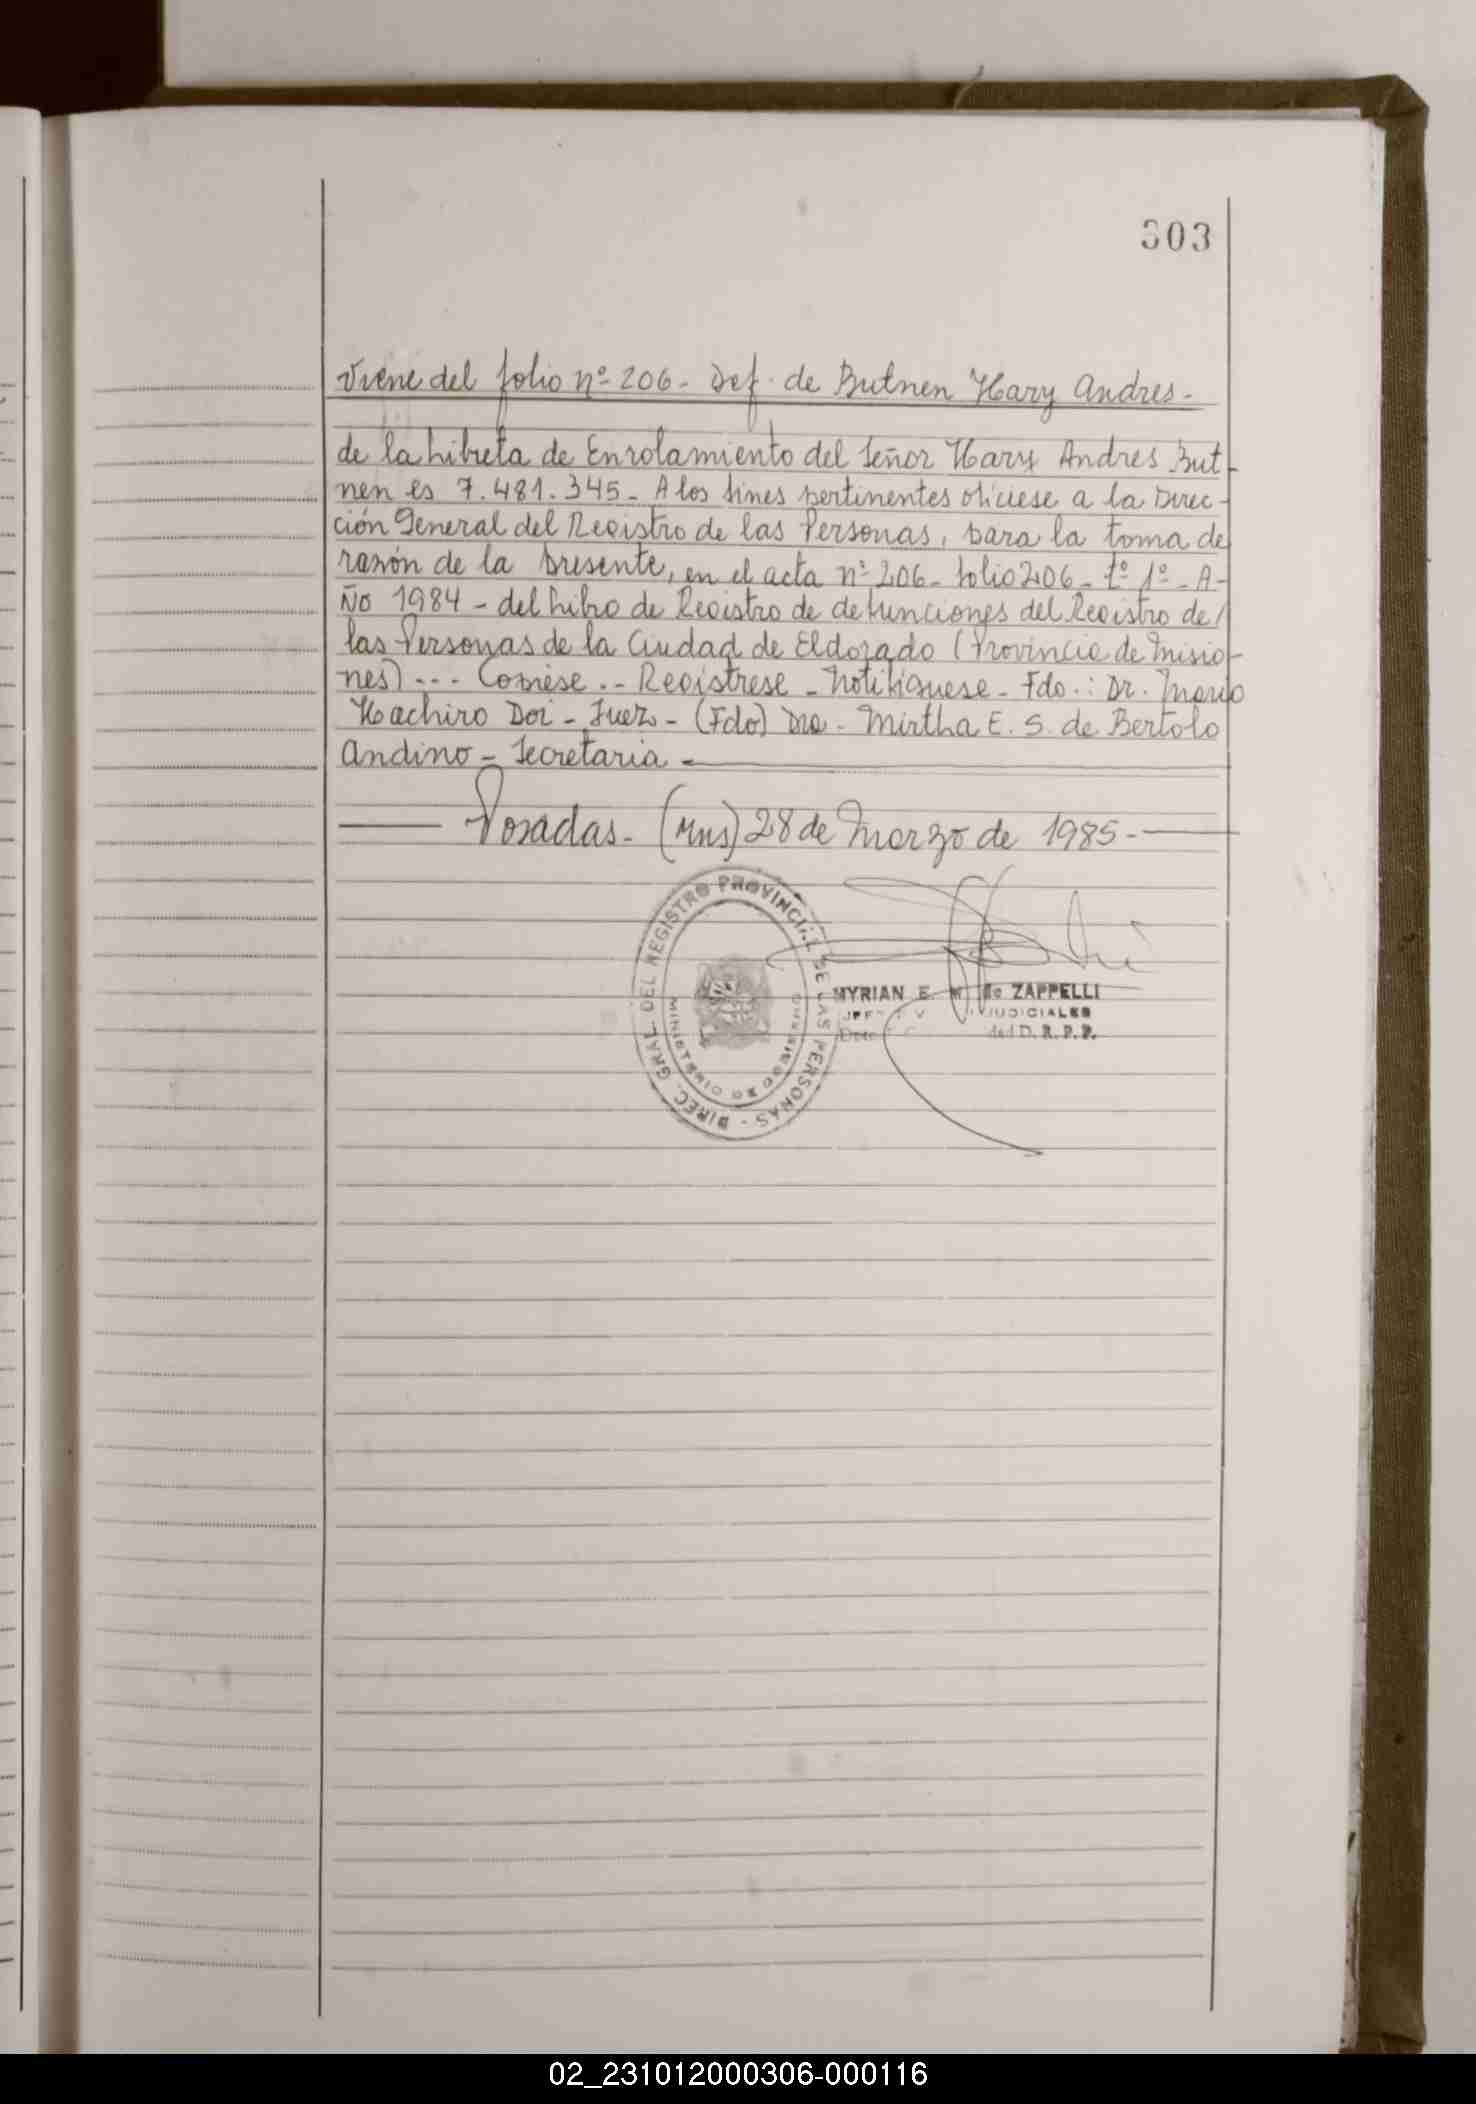 303
Viene del folio nº 206 - Def. de Butnen Hary Andres -
de la Libreta de Enrolamiento del Señor Hary Andres But-
nen es 7.481.345 - A los fines pertinentes ofíciese a la Direc-
ción General del Registro de las Personas, para la toma de
razón de la presente, en el acta nº 206 - folio 206 - tº 1º - A-
ÑO 1984 - del Libro de Registro de defunciones del Registro de/
las Personas de la Ciudad de Eldorado (Provincia de Misio-
nes) --- Copiese .- Registrese - Notifiquese - Fdo.: Dr. Mario
Hachiro Doi - Juez - (Fdo) Dra. Mirtha E. S. de Bertolo
Andino - Secretaria -
Posadas - (Mns) 28 de Marzo de 1985 -
DIREC. GRAL. DEL REGISTRO PROVINCIAL DE LAS PERSONAS -
MINISTERIO DE GOBIERNO
MYRIAN E. de ZAPPELLI
JUDICIALES
del D. R. P. P.
02_231012000306-000116